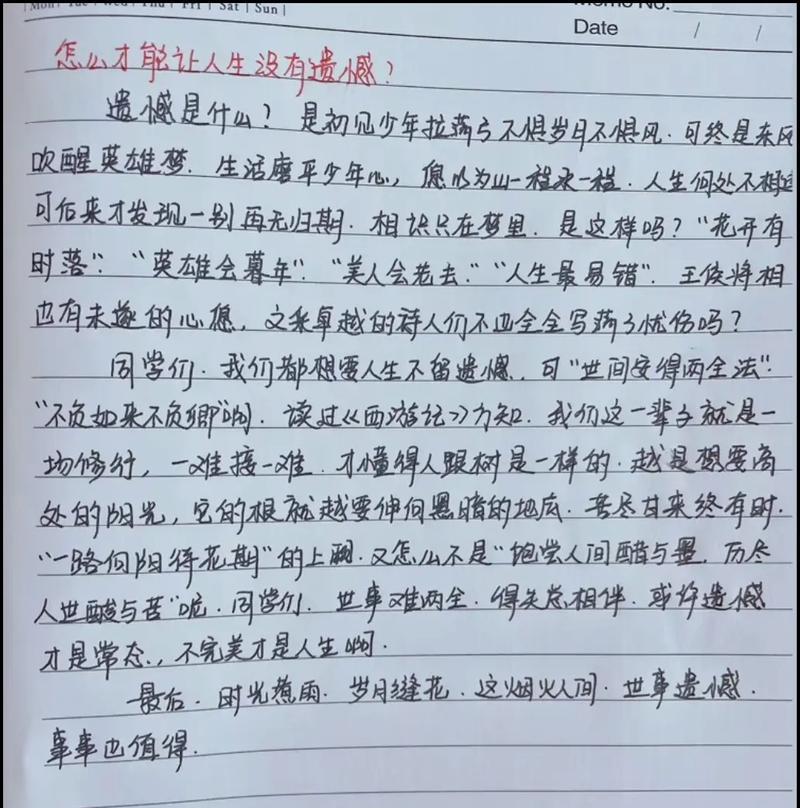 Mon Tue Wed Thu Fri Sat Sun
Memo No.
Date / /
怎么才能让人生没有遗憾?
遗憾是什么? 是初见少年拉满弓不惧岁月不惧风. 可终是东风
吹醒英雄梦. 生活磨平少年心, 您以为山一程水一程. 人生何处不相逢
可后来才发现一别再无归期. 相识只在梦里. 是这样吗? “花开有
时落”. “英雄会暮年”. “美人会老去.” “人生最易错”. 王侯将相
也有未遂的心愿, 文采卓越的诗人们不也全全写满了忧伤吗?
同学们. 我们都想要人生不留遗憾. 可“世间安得两全法”.
“不负如来不负卿”啊. 读过《西游记》方知. 我们这一辈子就是一
场修行, 一难接一难. 才懂得人跟树是一样的. 越是想要高
处的阳光, 它的根就越要伸向黑暗的地底. 苦尽甘来终有时.
“一路向阳待花期”的上阕. 又怎么不是“饱尝人间醋与墨. 历尽
人世酸与苦”呢. 同学们. 世事难两全. 得失总相伴. 或许遗憾
才是常态., 不完美才是人生啊.
最后. 时光煮雨. 岁月缝花. 这烟火人间. 世事遗憾.
事事也值得.